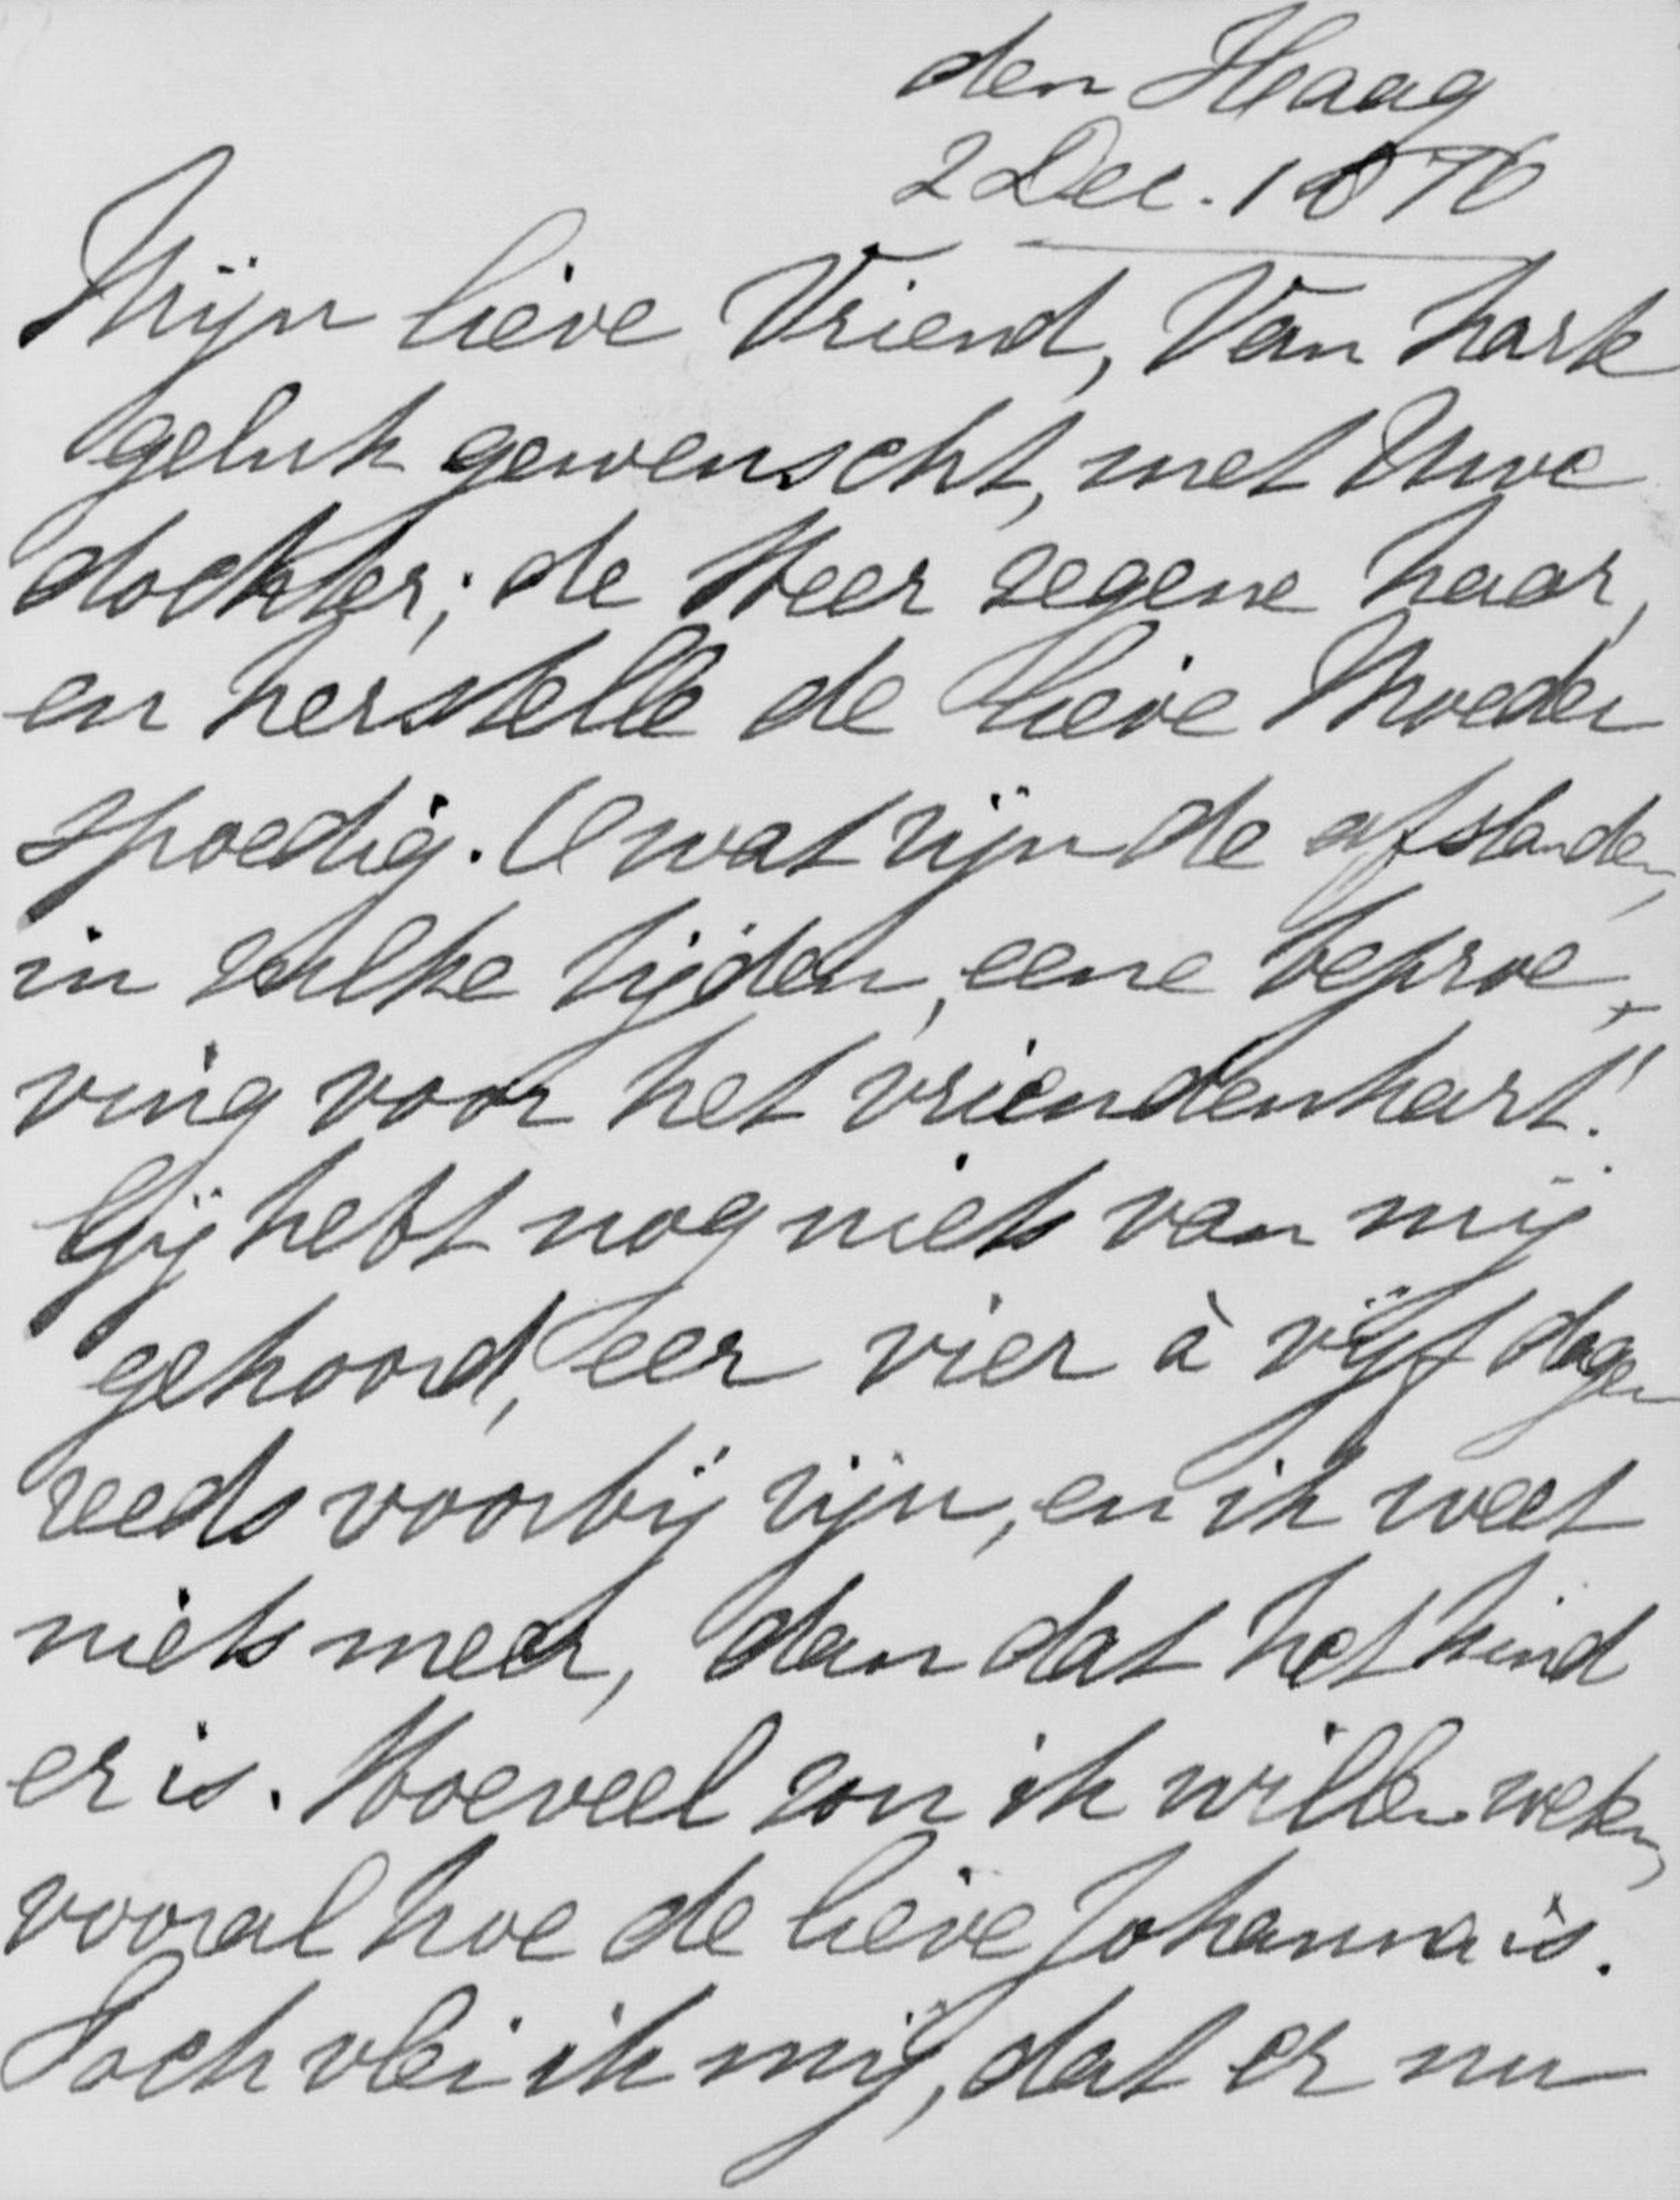 den Haag
2 Dec. 1876
Mijn lieve Vriend, Van harte
geluk gewenscht, met Uwe
dochter; de Heer zegene haar,
en herstelle de lieve Moeder
spoedig. O wat zijn de afstanden,
in zulke tijden, eene beproe-
ving voor het vriendenhart!
Gij hebt nog niets van mij
gehoord, eer vier à vijf dagen
reeds voorbij zijn, en ik weet
niets meer, dan dat het kind
er is. Hoeveel zou ik willen weten,
vooral hoe de lieve Johanna is.
Toch vlei ik mij, dat er nu